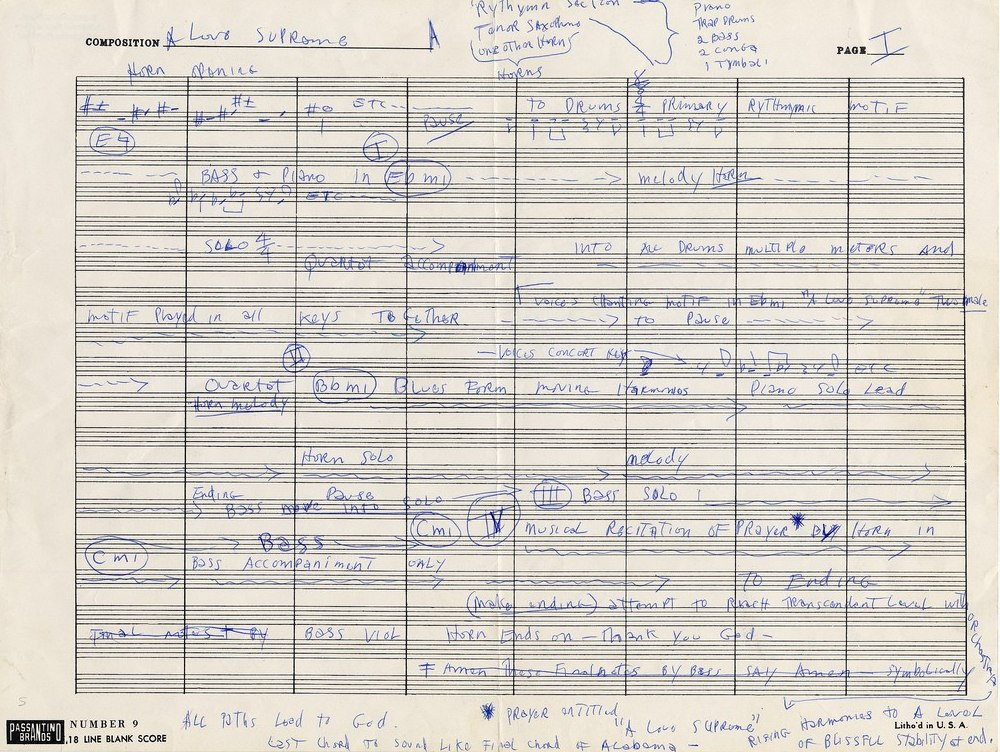 "Rythymn Section
Tenor Saxophone
(one other horn)
Piano
TRAP DRUMS
2 BASS
2 CONGA
1 Tymbali
COMPOSITION A Love Supreme A
PAGE I
Horn opening
Horns
ETC
Pause
TO DRUMS 4/4 PRIMARY RYTHMMIC MOTIF
E♮
I
BASS & Piano in Eb mi melody Horn
ETC
SOLO 4/4 INTO ALL DRUMS multiple meters and
Quartet accompaniment
VOICES Chanting motif in Ebmi "A Love Supreme" Two male
motif Played in all keys Together to Pause
II
VOICES CONCERT KEY
ETC
Quartet Bb mi Blues Form moving Harmonies Piano Solo Lead
Horn melody
Horn Solo melody
Ending Pause SOLO III Bass SOLO 1
Bass move into
C mi IV Musical Recitation of Prayer * BY Horn in
Bass
C mi Bass Accompaniment only
TO Ending
(make ending) attempt to Reach Transcendent Level with
OR Chanting
Final notes BY Bass Viol Horn Ends on — Thank you God —
Amen These Final notes BY Bass SAY Amen symbolically
PASSANTINO BRANDS
NUMBER 9
18 LINE BLANK SCORE
ALL Paths Lead to God.
Last Chord to sound Like Final chord of Alabama —
* Prayer entitled
"A Love Supreme"
Litho'd in U. S. A.
RISING Harmonies to A Level
OF Blissful Stability at end.